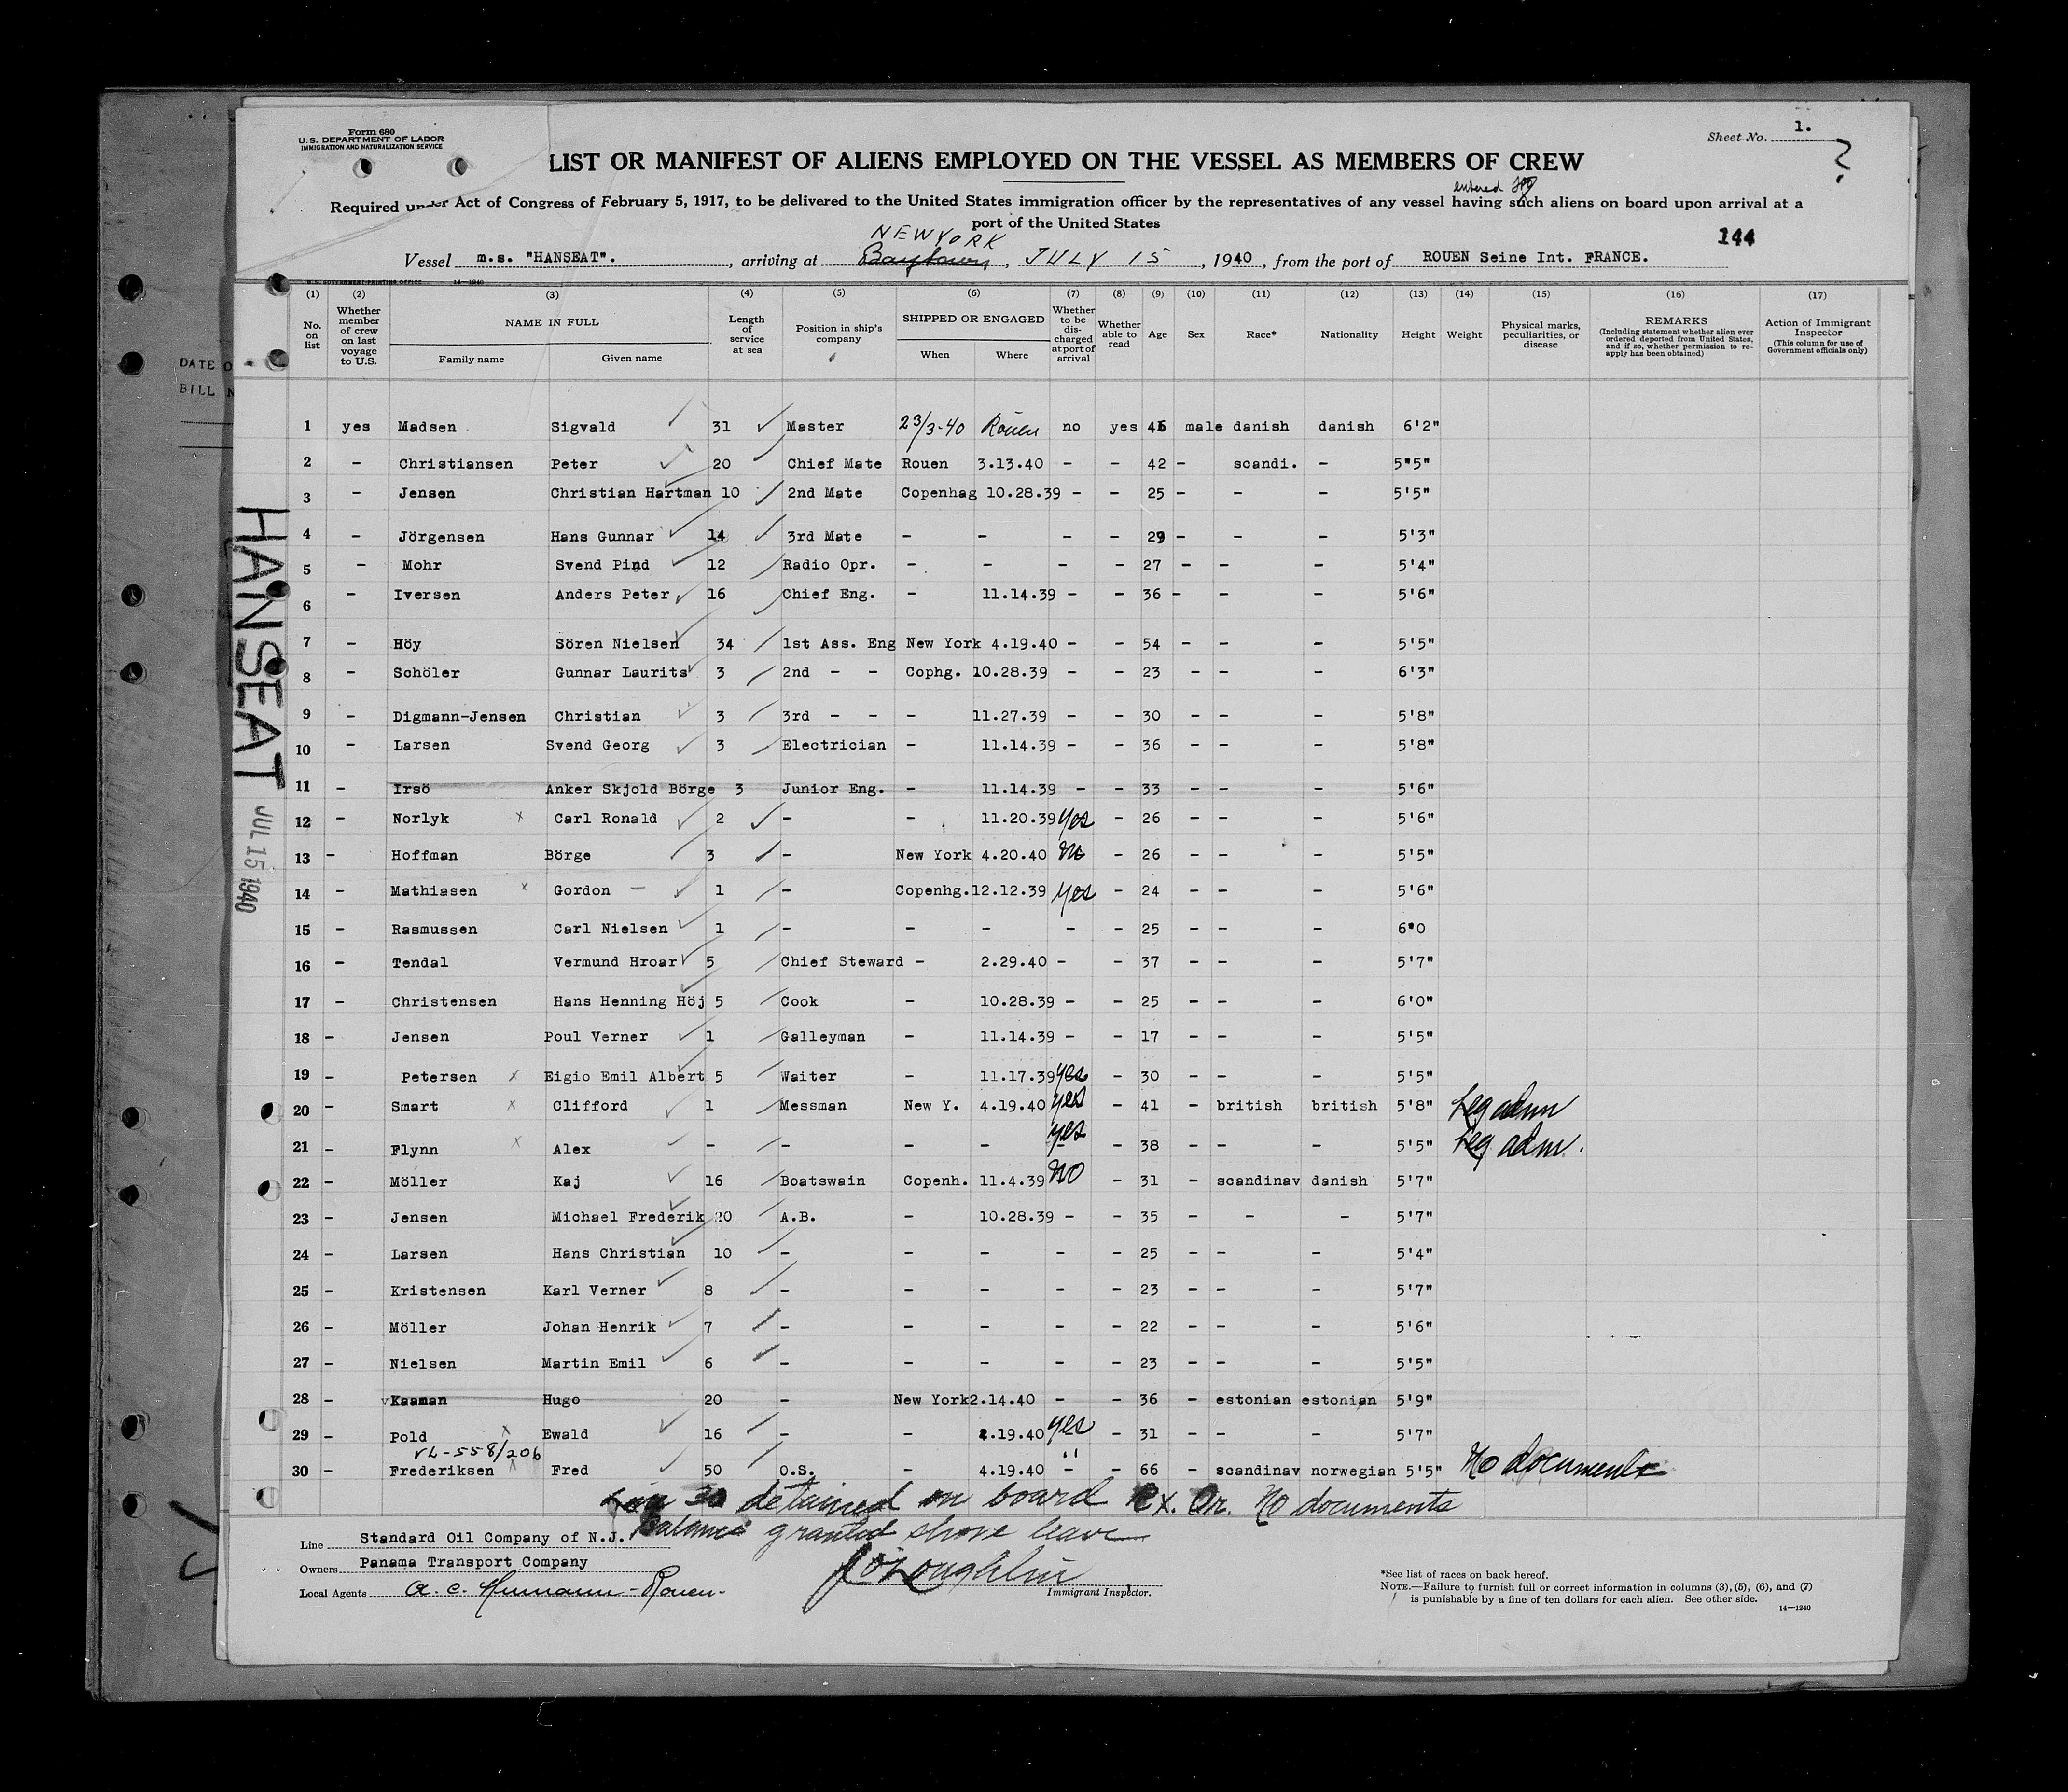 Form 680
U. S. DEPARTMENT OF LABOR
IMMIGRATION AND NATURALIZATION SERVICE
Sheet No. 1.
?
LIST OR MANIFEST OF ALIENS EMPLOYED ON THE VESSEL AS MEMBERS OF CREW
entered
Required under Act of Congress of February 5, 1917, to be delivered to the United States immigration officer by the representatives of any vessel having such aliens on board upon arrival at a
port of the United States
NEW YORK
144
Vessel m.s. "HANSEAT". , arriving at Baytown, JULY 15, 1940, from the port of ROUEN Seine Int. FRANCE.
U. S. GOVERNMENT PRINTING OFFICE 14—1240
(1) (2) (3) (4) (5) (6) (7) (8) (9) (10) (11) (12) (13) (14) (15) (16) (17)
No. on list
Whether member of crew on last voyage to U.S.
NAME IN FULL
Family name Given name
Length of service at sea
Position in ship's company
SHIPPED OR ENGAGED
When Where
Whether to be discharged at port of arrival
Whether able to read
Age Sex Race* Nationality Height Weight
Physical marks, peculiarities, or disease
REMARKS
(Including statement whether alien ever ordered deported from United States, and if so, whether permission to reapply has been obtained)
Action of Immigrant Inspector
(This column for use of Government officials only)
DATE O
BILL N
1 yes Madsen Sigvald 31 Master 23/3-40 Rouen no yes 45 male danish danish 6'2"
2 - Christiansen Peter 20 Chief Mate Rouen 3.13.40 - - 42 - scandi. - 5"5"
3 - Jensen Christian Hartman 10 2nd Mate Copenhag 10.28.39 - - 25 - - - 5'5"
4 - Jörgensen Hans Gunnar 14 3rd Mate - - - - 29 - - - 5'3"
5 - Mohr Svend Pind 12 Radio Opr. - - - - 27 - - - 5'4"
6 - Iversen Anders Peter 16 Chief Eng. - 11.14.39 - - 36 - - - 5'6"
7 - Höy Sören Nielsen 34 1st Ass. Eng New York 4.19.40 - - 54 - - - 5'5"
8 - Schöler Gunnar Laurits 3 2nd - - Cophg. 10.28.39 - - 23 - - - 6'3"
9 - Digmann-Jensen Christian 3 3rd - - - 11.27.39 - - 30 - - - 5'8"
10 - Larsen Svend Georg 3 Electrician - 11.14.39 - - 36 - - - 5'8"
11 - Irsö Anker Skjold Börge 3 Junior Eng. - 11.14.39 - - 33 - - - 5'6"
12 - Norlyk x Carl Ronald 2 - - 11.20.39 yes - 26 - - - 5'6"
13 - Hoffman Börge 3 - New York 4.20.40 no - 26 - - - 5'5"
14 - Mathiasen x Gordon - 1 - Copenhg. 12.12.39 yes - 24 - - - 5'6"
15 - Rasmussen Carl Nielsen 1 - - - - - 25 - - - 6"0
16 - Tendal Vermund Hroar 5 Chief Steward - 2.29.40 - - 37 - - - 5'7"
17 - Christensen Hans Henning Höj 5 Cook - 10.28.39 - - 25 - - - 6'0"
18 - Jensen Poul Verner 1 Galleyman - 11.14.39 - - 17 - - - 5'5"
19 - Petersen x Eigio Emil Albert 5 Waiter - 11.17.39 yes - 30 - - - 5'5"
20 - Smart x Clifford 1 Messman New Y. 4.19.40 yes - 41 - british british 5'8" Leg adm
21 - Flynn x Alex - - - - yes - 38 - - - 5'5" Leg adm.
22 - Möller Kaj 16 Boatswain Copenh. 11.4.39 NO - 31 - scandinav danish 5'7"
23 - Jensen Michael Frederik 20 A.B. - 10.28.39 - - 35 - - - 5'7"
24 - Larsen Hans Christian 10 - - - - - 25 - - - 5'4"
25 - Kristensen Karl Verner 8 - - - - - 23 - - - 5'7"
26 - Möller Johan Henrik 7 - - - - - 22 - - - 5'6"
27 - Nielsen Martin Emil 6 - - - - - 23 - - - 5'5"
28 - Kaaman Hugo 20 - New York 2.14.40 - - 36 - estonian estonian 5'9"
29 - Pold x Ewald 16 - - 4.19.40 yes - 31 - - - 5'7"
VL-558/206
30 - Frederiksen x Fred 50 O.S. - 4.19.40 " - - 66 - scandinav norwegian 5'5" No documents
Line 30 detained on board Ex. Or. No documents
Balance granted shore leave
Line Standard Oil Company of N.J.
Owners Panama Transport Company
Local Agents A. C. Humann - Rouen.
J O'Loughlin
Immigrant Inspector.
*See list of races on back hereof.
NOTE.—Failure to furnish full or correct information in columns (3), (5), (6), and (7)
is punishable by a fine of ten dollars for each alien. See other side.
14—1240
HANSEAT
JUL 15 1940